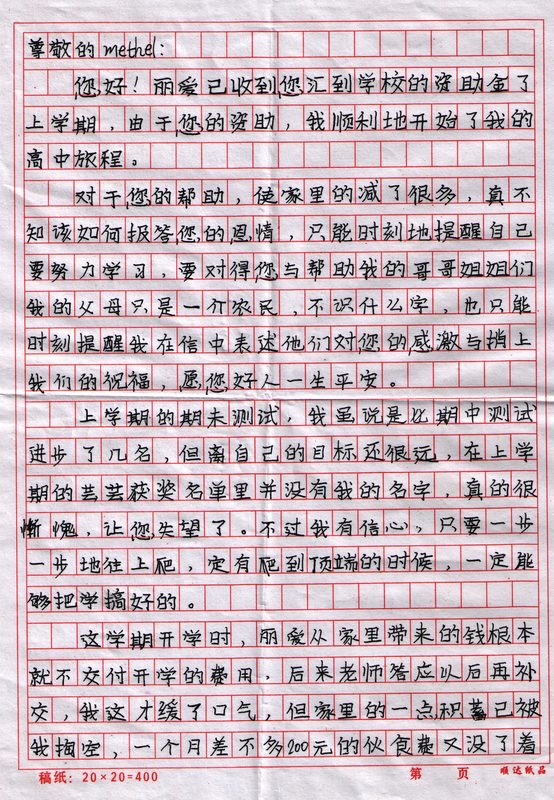 尊敬的methel:
您好！丽爱已收到您汇到学校的资助金了
上学期，由于您的资助，我顺利地开始了我的
高中旅程。
对于您的帮助，使家里的减了很多，真不
知该如何报答您的恩情，只能时刻地提醒自己
要努力学习，要对得您与帮助我的哥哥姐姐们
我的父母只是一介农民，不识什么字，也只能
时刻提醒我在信中表述他们对您的感激与捎上
我们的祝福，愿您好人一生平安。
上学期的期未测试，我虽说是比期中测试
进步了几名，但离自己的目标还很远，在上学
期的芸芸获奖名单里并没有我的名字，真的很
惭愧，让您失望了。不过我有信心，只要一步
一步地往上爬，定有爬到顶端的时候，一定能
够把学搞好的。
这学期开学时，丽爱从家里带来的钱根本
就不交付开学的费用，后来老师答应以后再补
交，我这才缓了口气，但家里的一点积蓄已被
我掏空，一个月差不多200元的伙食费又没了着
稿纸：20×20=400 第 页 顺达纸品